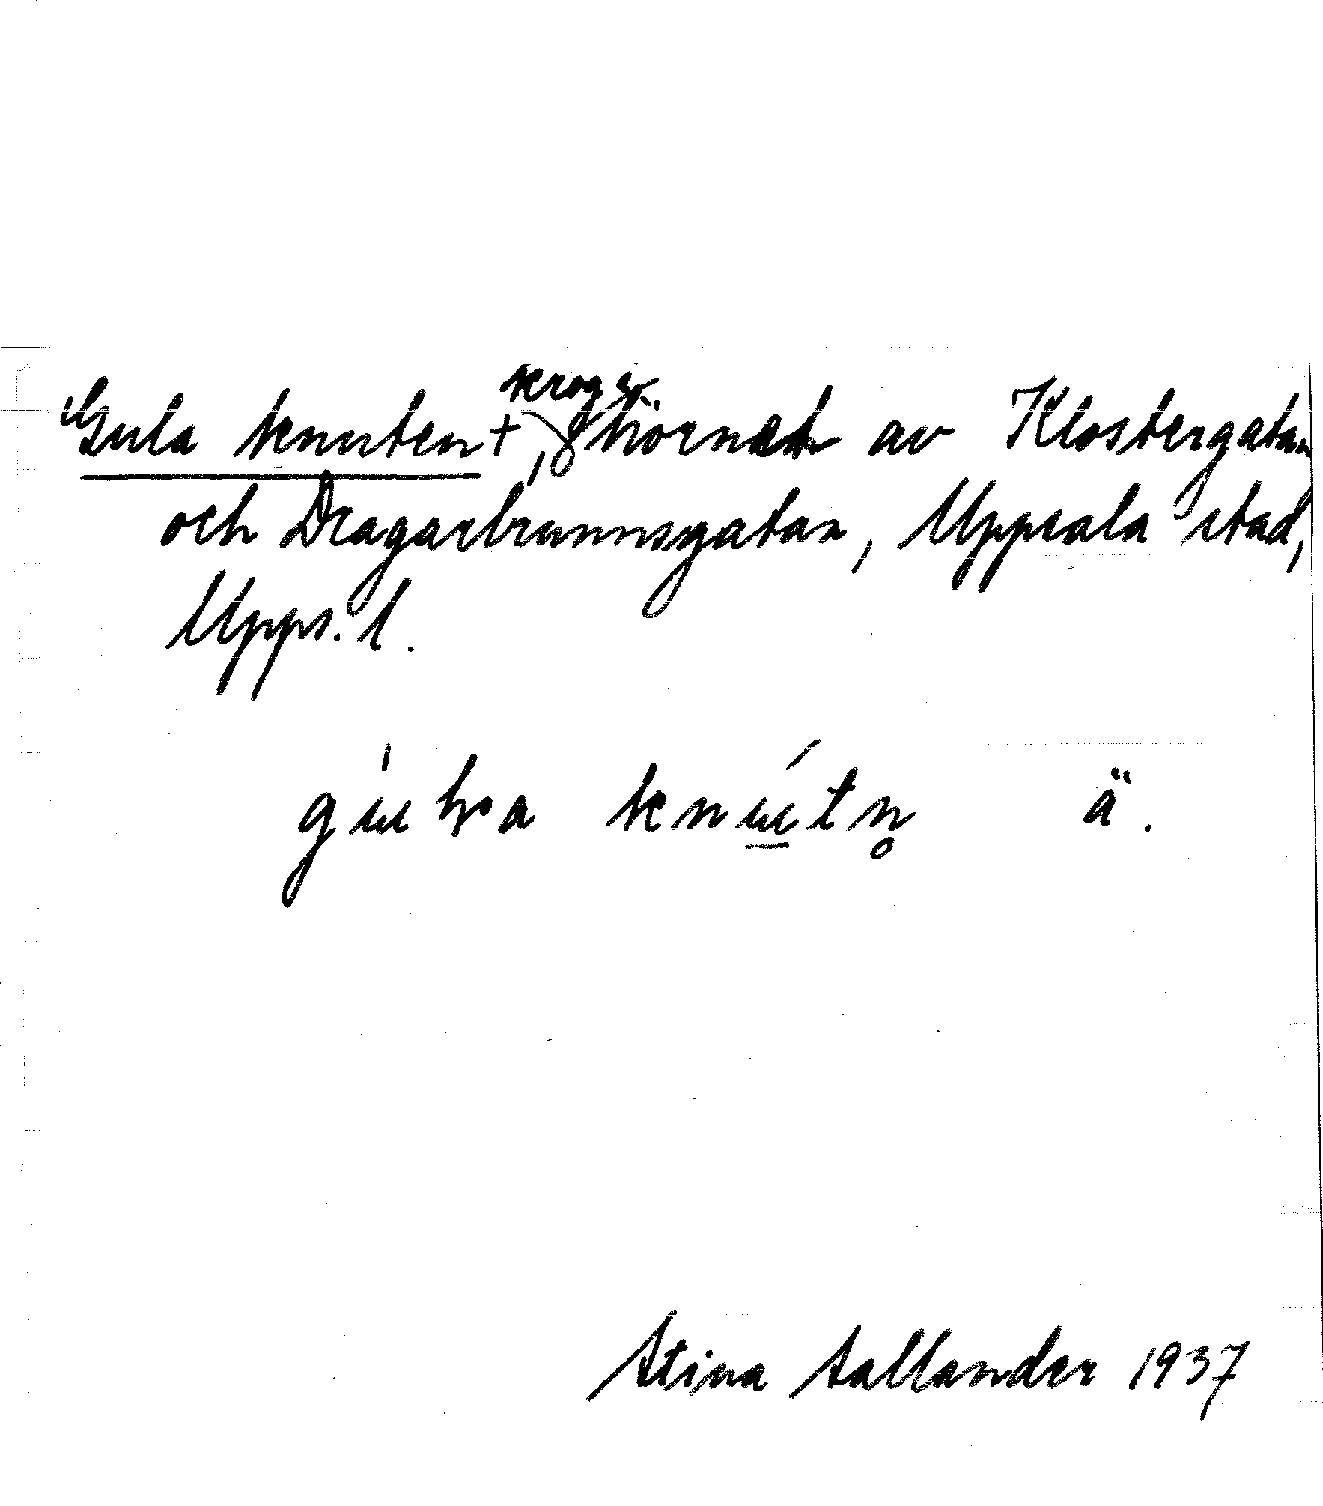 Gula knuten +, krog i hörnet av Klostergatan
och Dragarbrunnsgatan, Uppsala stad,
Upps. l.
ä.
Stina Sallander 1937